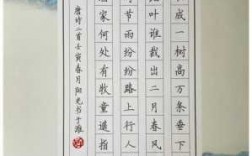 成一树高万条垂下
叶谁裁出二月春风
节雨纷纷路上行人
家何处有牧童遥指
唐诗二首壬寅春月阳光书于潍